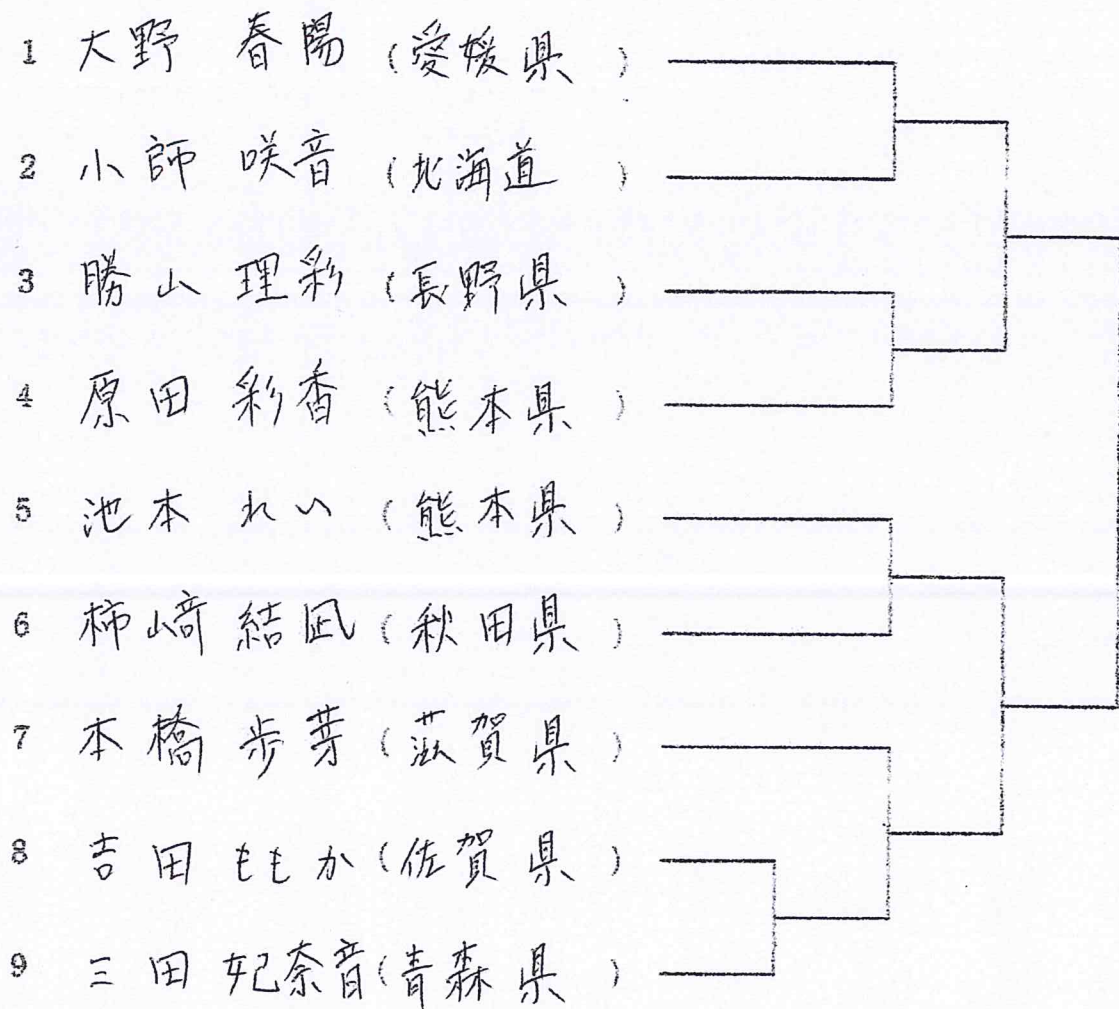 1 大野 春陽 (愛媛県)
2 小師 咲音 (北海道)
3 勝山 理彩 (長野県)
4 原田 彩香 (熊本県)
5 池本 れい (熊本県)
6 柿﨑 結凪 (秋田県)
7 本橋 歩芽 (滋賀県)
8 吉田 ももか (佐賀県)
9 三田 妃奈音 (青森県)